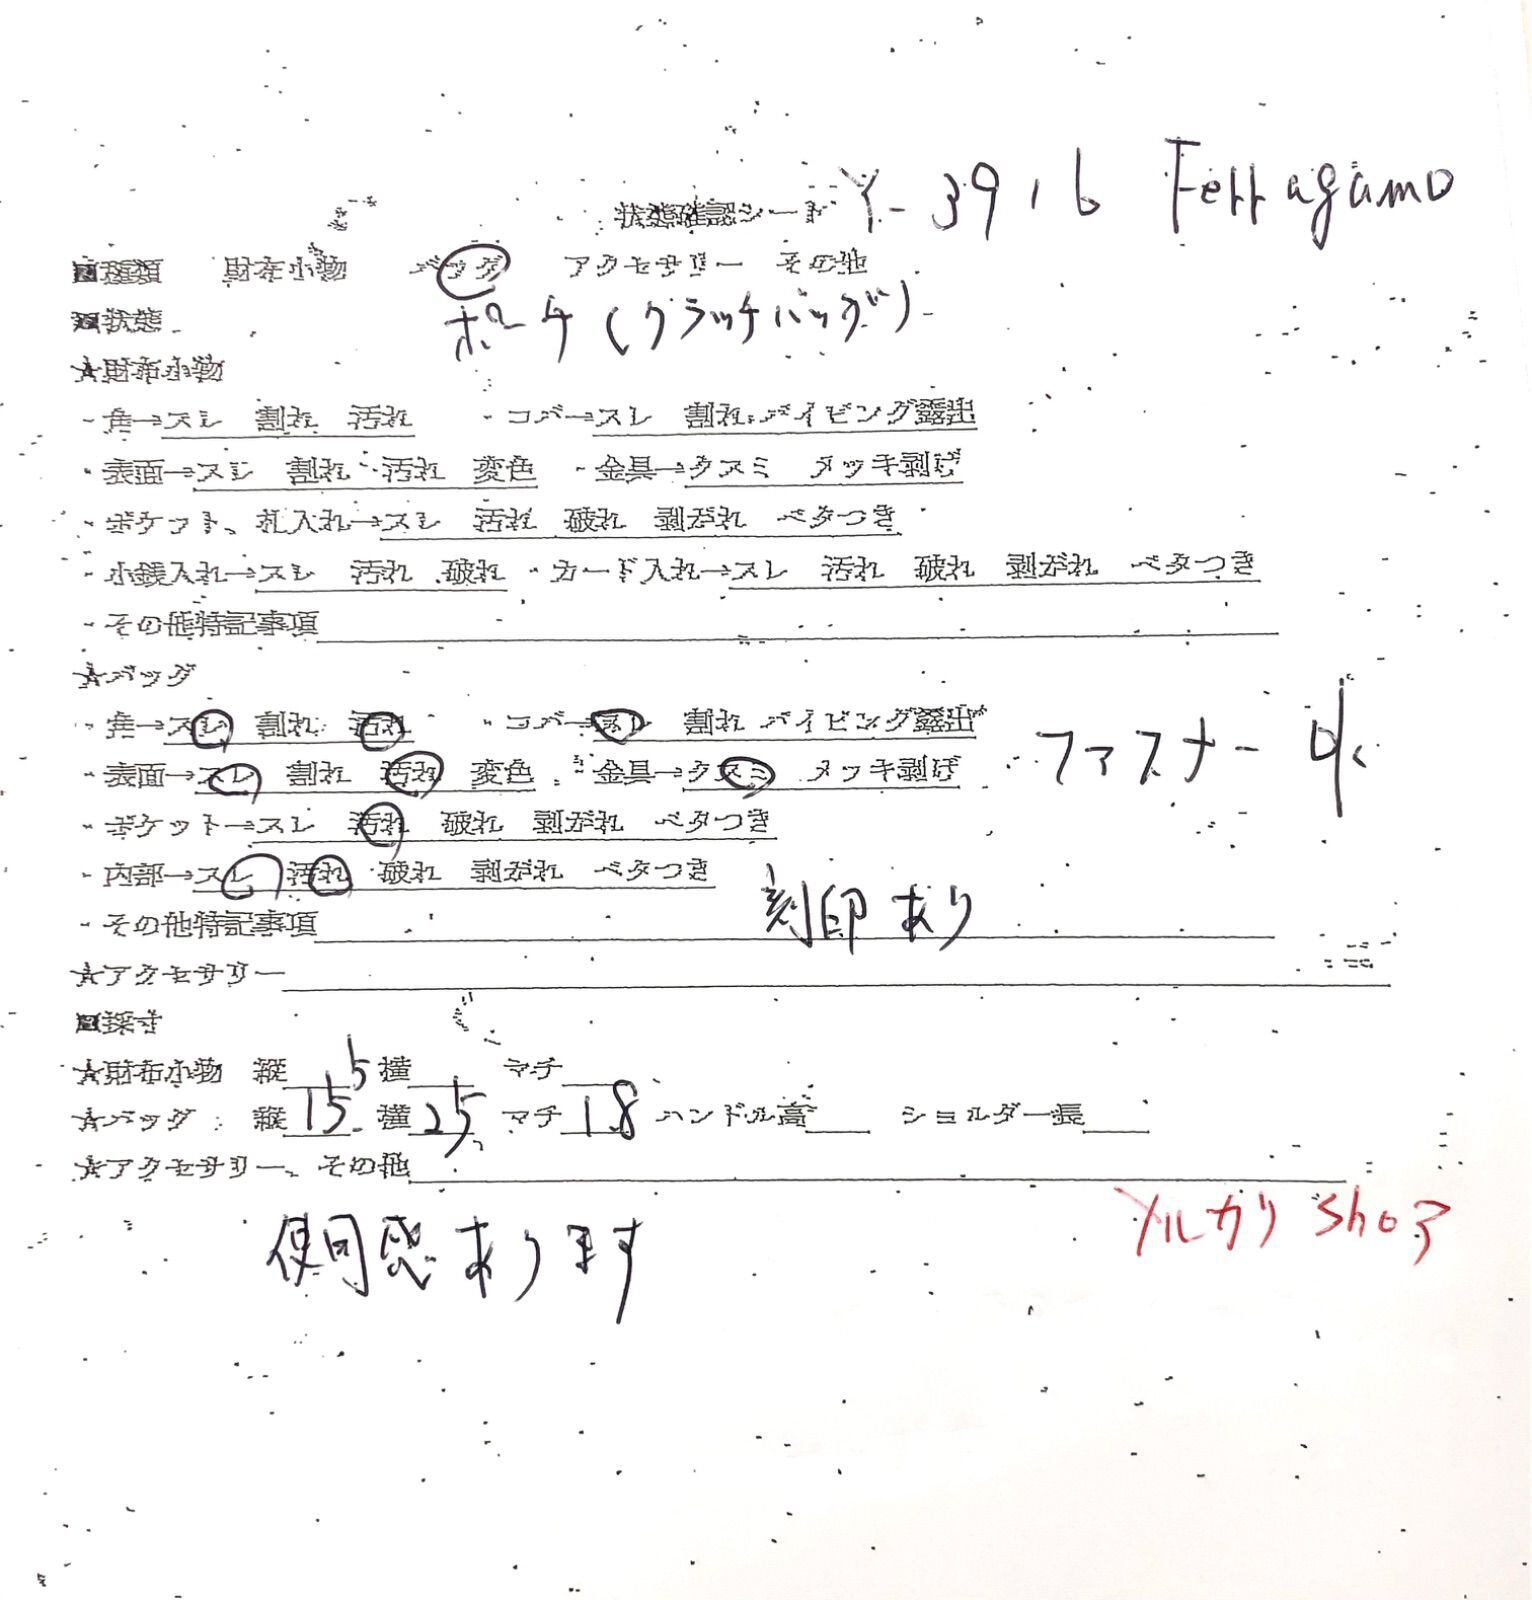 状態確認シート Y-3916 Ferragamo
■種類 財布小物 バッグ アクセサリー その他
■状態 ポーチ(クラッチバッグ)
★財布小物
・角→スレ 割れ 汚れ ・コバ→スレ 割れ パイピング露出
・表面→スレ 割れ 汚れ 変色 ・金具→クスミ メッキ剥げ
・ポケット、札入れ→スレ 汚れ 破れ 剥がれ ベタつき
・小銭入れ→スレ 汚れ 破れ ・カード入れ→スレ 汚れ 破れ 剥がれ ベタつき
・その他特記事項
★バッグ
・角→スレ 割れ 汚れ ・コバ→スレ 割れ パイピング露出
・表面→スレ 割れ 汚れ 変色 ・金具→クスミ メッキ剥げ ファスナー
・ポケット→スレ 汚れ 破れ 剥がれ ベタつき
・内部→スレ 汚れ 破れ 剥がれ ベタつき
・その他特記事項 刻印あり
★アクセサリー
■採寸
★財布小物 縦 横 マチ
★バッグ 縦15.5 横25 マチ1.8 ハンドル高 ショルダー長
★アクセサリー、その他
使用感あります メルカリ shop